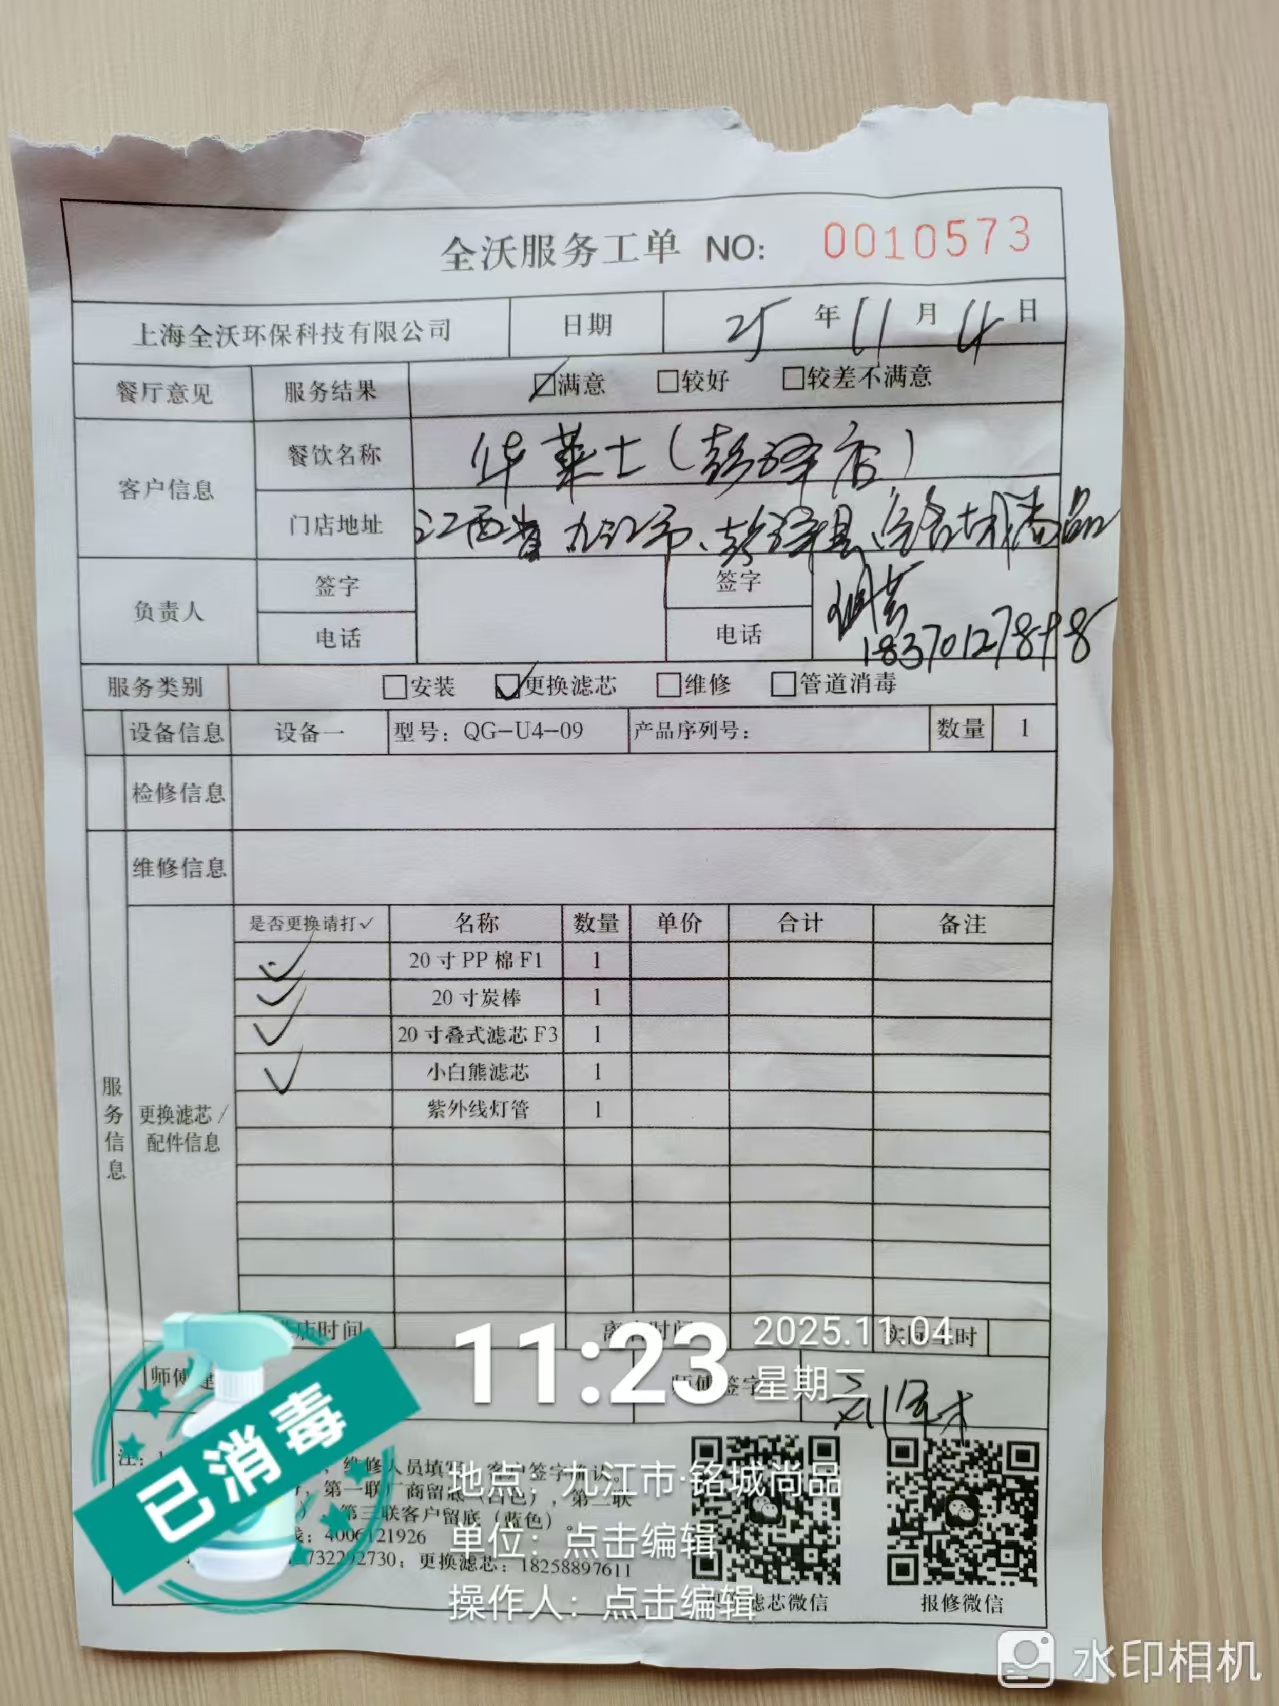 全沃服务工单 NO: 0010573
上海全沃环保科技有限公司 日期 25 年 11 月 4 日
餐厅意见 服务结果 ☑满意 □较好 □较差不满意
客户信息 餐饮名称 华莱士(彭泽店)
门店地址 江西省九江市、彭泽县,铭城尚品
负责人 签字 签字
电话 电话
服务类别 □安装 ☑更换滤芯 □维修 □管道消毒
设备信息 设备一 型号: QG-U4-09 产品序列号: 数量 1
检修信息
维修信息
是否更换请打✓ 名称 数量 单价 合计 备注
✓ 20寸PP棉F1 1
✓ 20寸炭棒 1
✓ 20寸叠式滤芯F3 1
✓ 小白熊滤芯 1
紫外线灯管 1
服务信息
更换滤芯/
配件信息
店时间 离店时间 实际工时
师傅 师傅签字
注:
维修人员填写,客户签字确认。
第一联厂商留底(白色),第二联
第三联客户留底(蓝色)。
4006121926
732292730; 更换滤芯: 18258897611
滤芯微信 报修微信
已消毒
11:23
2025.11.04
星期二
地点: 九江市·铭城尚品
单位: 点击编辑
操作人: 点击编辑
水印相机